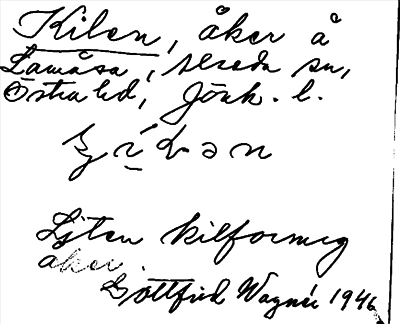 Kilen, åker å
Lamåsa, Alseda sn,
Östra hd, Jönk. l.
Liten kilformig
åker
Gottfrid Wagnér 1946